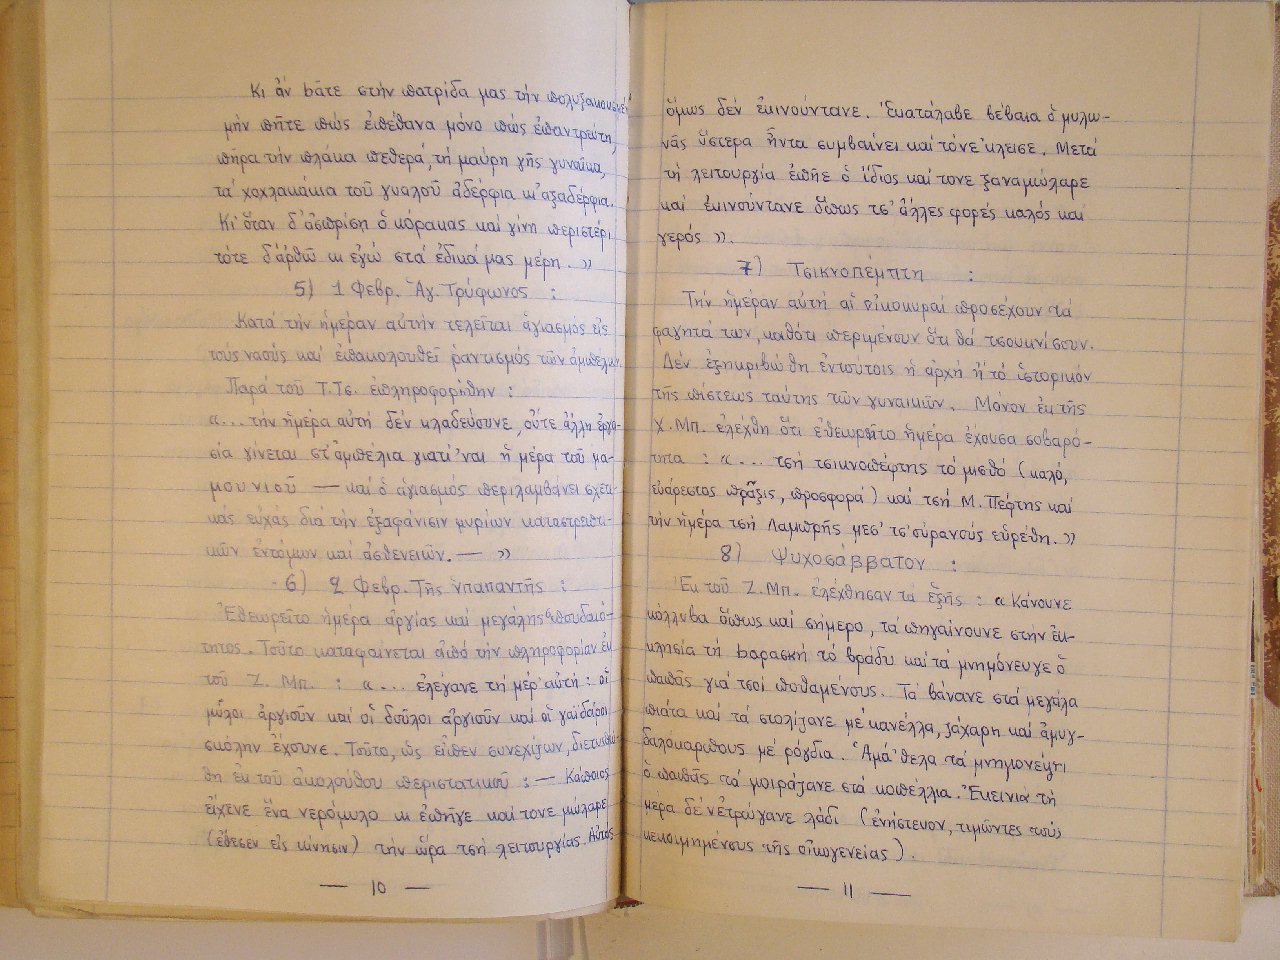 Κι ἄν bᾶτε στήν πατρίδα μας τήν πολυξακουσμέ-
μήν πῆτε πώς ἐπέθανα μόνο πώς ἐπαντρεύτη,
πῆρα τήν πλάκα πεθερά, τή μαύρη γῆς γυναῖκα,
τά χοχλακάκια τοῦ γυαλοῦ ἀδέρφια κι' ἀξαδέρφια.
Κι' ὅταν δ' ἀσπρίση ὁ κόρακας καί γίνη περιστέρι
τότε δ' ἀρθῶ κι ἐγώ στά ἐδικά μας μέρη. »
5) 1 Φεβρ. Ἁγ. Τρύφωνος :
Κατά τήν ἡμέραν αὐτήν τελεῖται ἁγιασμός εἰς
τούς ναούς καί ἐπακολουθεῖ ραντισμός τῶν ἀμπέλων.
Παρά τοῦ Τ.Τσ. ἐπληροφορήθην :
«... τήν ἡμέρα αὐτή δέν κλαδεύουνε, οὔτε ἄλλη ἐργα-
σία γίνεται στ' ἀμπέλια γιατί 'ναι ἡ μέρα τοῦ μα-
μουνιοῦ — καί ὁ ἁγιασμός περιλαμβάνει σχετι-
κάς εὐχάς διά τήν ἐξαφάνισιν μυρίων καταστρεπτι-
κῶν ἐντόμων καί ἀσθενειῶν. — »
6) 2 Φεβρ. Τῆς Ὑπαπαντῆς :
Ἐθεωρεῖτο ἡμέρα ἀργίας καί μεγάλης σπουδαιό-
τητος. Τοῦτο καταφαίνεται ἀπό τήν πληροφορίαν ἐκ
τοῦ Ζ. Μπ. : «... ἐλέγανε τή μέρ' αὐτή : οἱ
μῦλοι ἀργιοῦν καί οἱ δοῦλοι ἀργιοῦν καί οἱ γαϊδάροι
σκόλην ἔχουνε. Τοῦτο, ὡς εἶπεν συνεχίζων, διετυπώ-
θη ἐκ τοῦ ἀκολούθου περιστατικοῦ : — Κάποιος
εἴχενε ἕνα νερόμυλο κι ἐπῆγε καί τονε μώλαρε
(ἔθεσεν εἰς κίνησιν) τήν ὥρα τσῆ λειτουργίας. Αὐτός
— 10 —
ὅμως δέν ἐκινούντανε. Ἐκατάλαβε βέβαια ὁ μυλω-
νᾶς ὕστερα ἦντα συμβαίνει καί τόνε 'κλεισε. Μετά
τή λειτουργία ἐπῆε ὁ ἴδιος καί τονε ξαναμώλαρε
καί ἐκινούντανε ὅπως τσ' ἄλλες φορές καλός καί
γερός ».
7) Τσικνοπέμπτη :
Τήν ἡμέραν αὐτή αἱ οἰκοκυραί προσέχουν τά
φαγητά των, καθότι περιμένουν ὅτι θά τσουκνίσουν.
Δέν ἐξηκριβώθη ἐντούτοις ἡ ἀρχή ἤ τό ἱστορικόν
τῆς πίστεως ταύτης τῶν γυναικῶν. Μόνον ἐκ τῆς
Χ. Μπ. ἐλέχθη ὅτι ἐθεωρεῖτο ἡμέρα ἔχουσα σοβαρό-
τητα : «... τσῆ τσικνοπέφτης τό μισθό (καλό,
εὐάρεστος πρᾶξις, προσφορά) καί τσῆ Μ. Πέφτης καί
τήν ἡμέρα τσῆ Λαμπρῆς μεσ' τσ' οὐρανούς εὑρέθη. »
8) Ψυχοσάββατον :
Ἐκ τοῦ Ζ. Μπ. ἐλέχθησαν τά ἑξῆς : « Κάνουνε
κόλλυβα ὅπως καί σήμερο, τά πηγαίνουνε στήν ἐκ-
κλησία τή bαρασκή τό βράδυ καί τά μνημόνευγε ὁ
παπᾶς γιά τσοί ποθαμένους. Τά βάνανε στά μεγάλα
πιάτα καί τά στολίζανε μέ κανέλλα, ζάχαρη καί ἀμυγ-
δαλοκαρπους μέ ρόγδια. Ἅμα' θελα τά μνημονεψη
ὁ παπᾶς τά μοιράζανε στά κοπέλλια. Ἐκεινιά τή
μέρα δέ νἐτρώγανε λάδι (ἐνήστευον, τιμῶντες τούς
κεκοιμημένους τῆς οἰκογενείας).
— 11 —